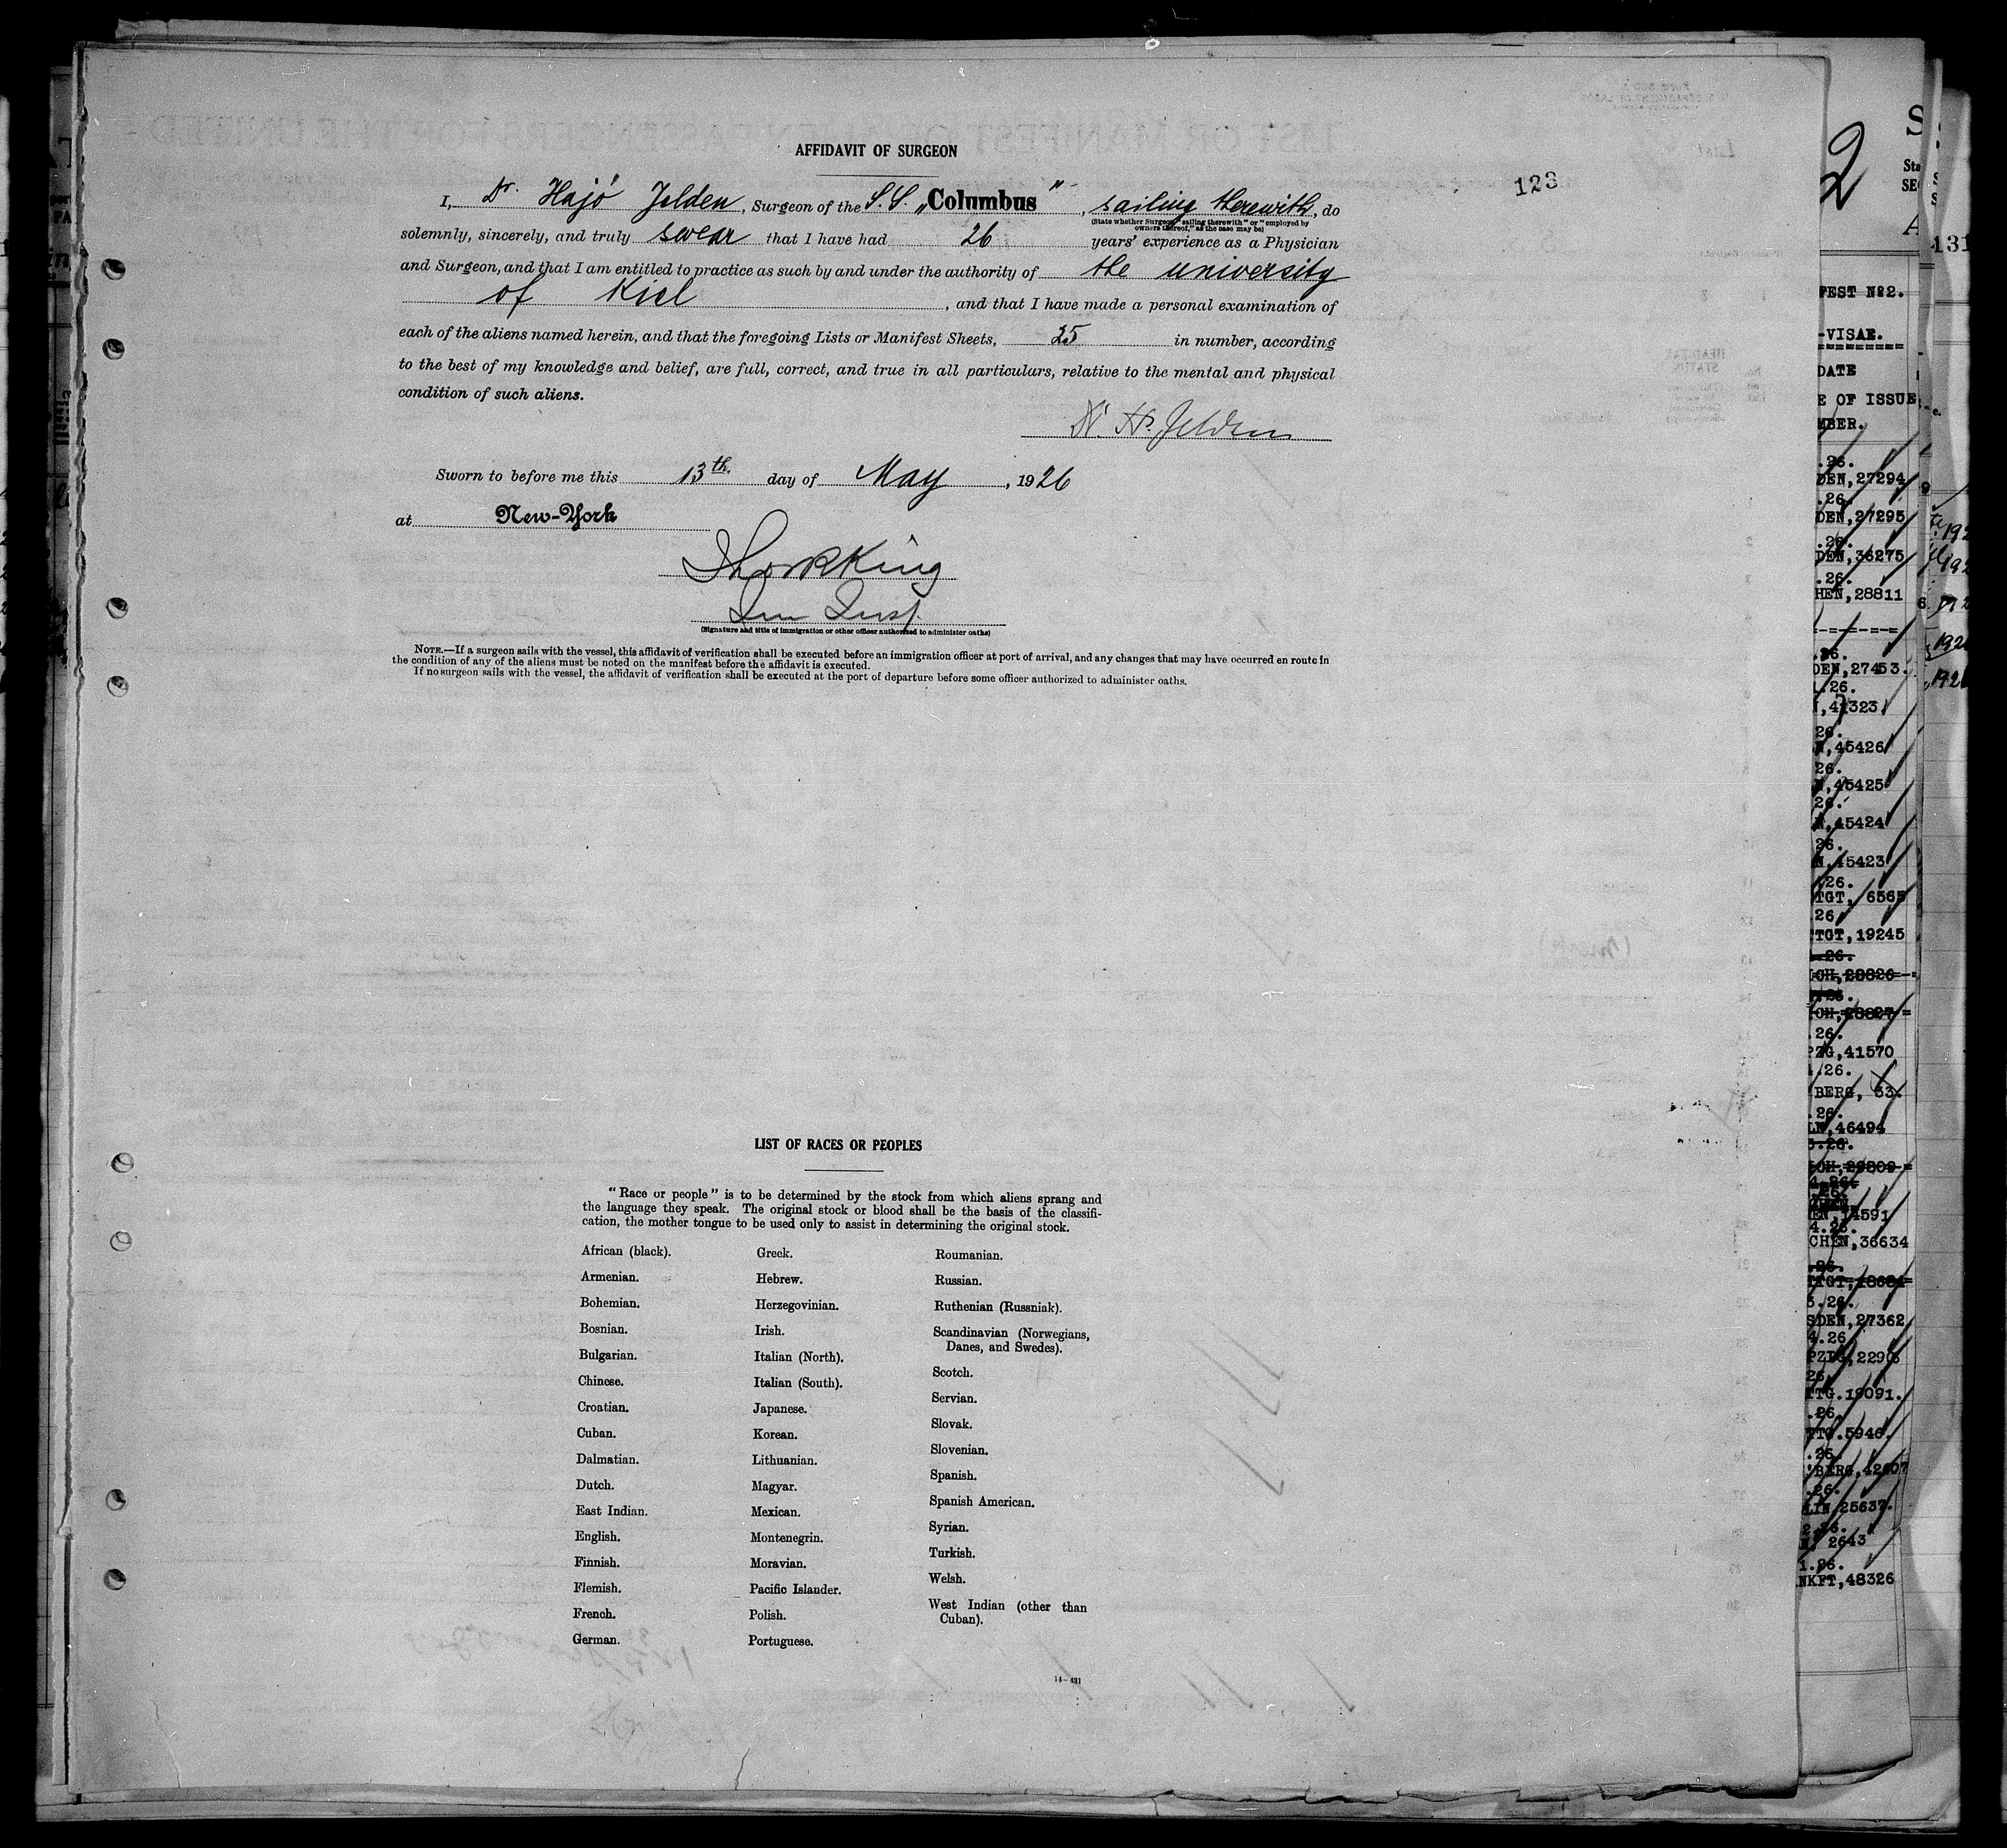 AFFIDAVIT OF SURGEON
123
I, Dr. Hajo Jelden, Surgeon of the S.S. „Columbus", sailing therewith, do
(State whether Surgeon "sailing therewith" or "employed by
owners thereof," as the case may be)
solemnly, sincerely, and truly swear that I have had 26 years' experience as a Physician
and Surgeon, and that I am entitled to practice as such by and under the authority of the university
of Kiel, and that I have made a personal examination of
each of the aliens named herein, and that the foregoing Lists or Manifest Sheets, 25 in number, according
to the best of my knowledge and belief, are full, correct, and true in all particulars, relative to the mental and physical
condition of such aliens.
Dr. H. Jelden
Sworn to before me this 13th. day of May, 1926
at New-York
King
Imm Insp.
(Signature and title of immigration or other officer authorized to administer oaths)
NOTE.—If a surgeon sails with the vessel, this affidavit of verification shall be executed before an immigration officer at port of arrival, and any changes that may have occurred en route in
the condition of any of the aliens must be noted on the manifest before the affidavit is executed.
If no surgeon sails with the vessel, the affidavit of verification shall be executed at the port of departure before some officer authorized to administer oaths.
LIST OF RACES OR PEOPLES
"Race or people" is to be determined by the stock from which aliens sprang and
the language they speak. The original stock or blood shall be the basis of the classifi-
cation, the mother tongue to be used only to assist in determining the original stock.
African (black).
Armenian.
Bohemian.
Bosnian.
Bulgarian.
Chinese.
Croatian.
Cuban.
Dalmatian.
Dutch.
East Indian.
English.
Finnish.
Flemish.
French.
German.
Greek.
Hebrew.
Herzegovinian.
Irish.
Italian (North).
Italian (South).
Japanese.
Korean.
Lithuanian.
Magyar.
Mexican.
Montenegrin.
Moravian.
Pacific Islander.
Polish.
Portuguese.
Roumanian.
Russian.
Ruthenian (Russniak).
Scandinavian (Norwegians,
Danes, and Swedes).
Scotch.
Servian.
Slovak.
Slovenian.
Spanish.
Spanish American.
Syrian.
Turkish.
Welsh.
West Indian (other than
Cuban).
14—431
2
FEST No2.
-VISAE.
DATE
E OF ISSUE
MBER.
DEN,27294
DEN,27295
DEN,36275
HEN,28811
DEN,27453.
,41323
,45426
,45425
,45424
,45423
TGT, 6565
TGT,19245
PZG,41570
BERG, 33.
LN,46494
EN,14591
CHEN,36634
SDEN,27362
TTG.19091.
TTG.5946.
BERG,42607
LIN,25637.
2643
NKFT,48326
131